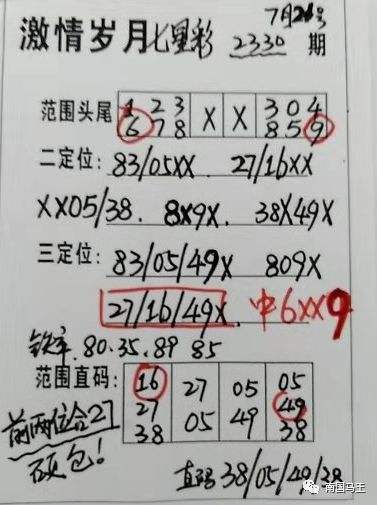 7月26号
激情岁月七星彩 2330 期
范围头尾 1 2 3 X X 3 0 4
6 7 8 8 5 9
二定位: 83/05XX 27/16XX
XX05/38. 8X9X. 38X49X
三定位: 83/05/49X 809X
27/16/49X. 中6XX9
铁率. 80.35.89 85
范围直码: 16 27 05 05
27 05 49 49
38 38
前两位合27
硕包!
直码 38/05/49/38
南国鸟王